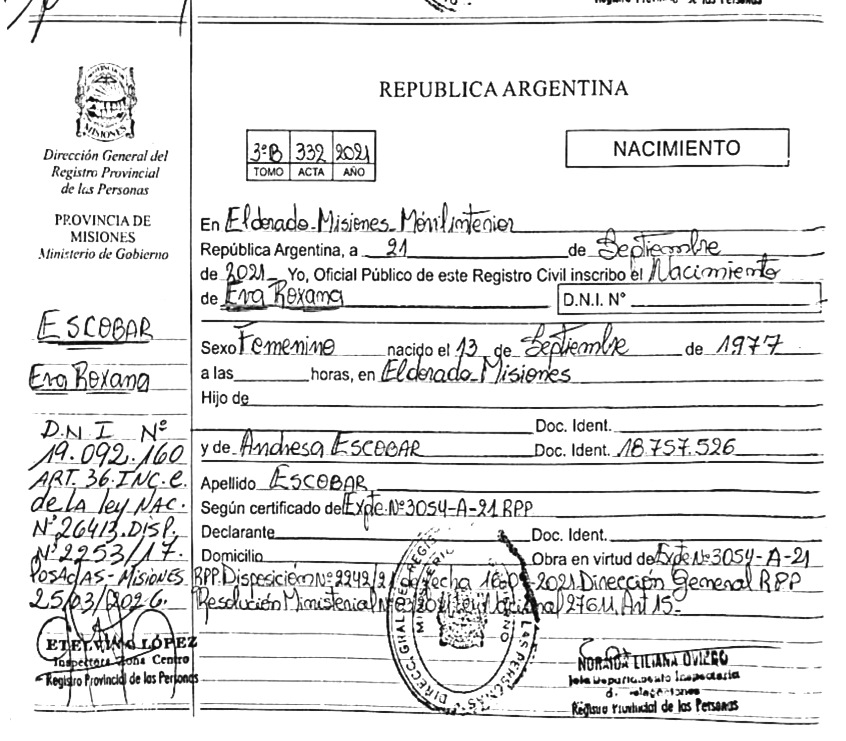 Registro Provincial de las Personas
REPUBLICA ARGENTINA
MISIONES
Dirección General del
Registro Provincial
de las Personas
PROVINCIA DE
MISIONES
Ministerio de Gobierno
3ºB 332 2021
TOMO ACTA AÑO
NACIMIENTO
En Eldorado - Misiones - Móvil interior
República Argentina, a 21 de Septiembre
de 2021 Yo, Oficial Público de este Registro Civil inscribo el Nacimiento
de Eva Roxana D.N.I. Nº
Sexo Femenino nacido el 13 de Septiembre de 1977
a las horas, en Eldorado - Misiones
Hijo de
Doc. Ident.
y de Andresa ESCOBAR Doc. Ident. 18.757.526
Apellido ESCOBAR
Según certificado de Expte. Nº 3054-A-21 RPP
Declarante Doc. Ident.
Domicilio Obra en virtud de Expte Nº 3054-A-21
RPP. Disposición Nº 2242/21 de fecha 2021 Dirección General RPP
Resolución Ministerial Ley Nacional 27611, Art 15-
ESCOBAR
Eva Roxana
D.N.I Nº
19.092.160
ART. 36. INC. C.
de LA ley NAC.
Nº 26413. DISP.
Nº 2253/17.
POSADAS - MISIONES
25/03/2026.
ETELVINO LÓPEZ
Inspectora Zona Centro
Registro Provincial de las Personas
LAS PERSONAS
NORAIDA LILIANA OVIEDO
Jefa Departamento Inspectoria
Registro Provincial de las Personas